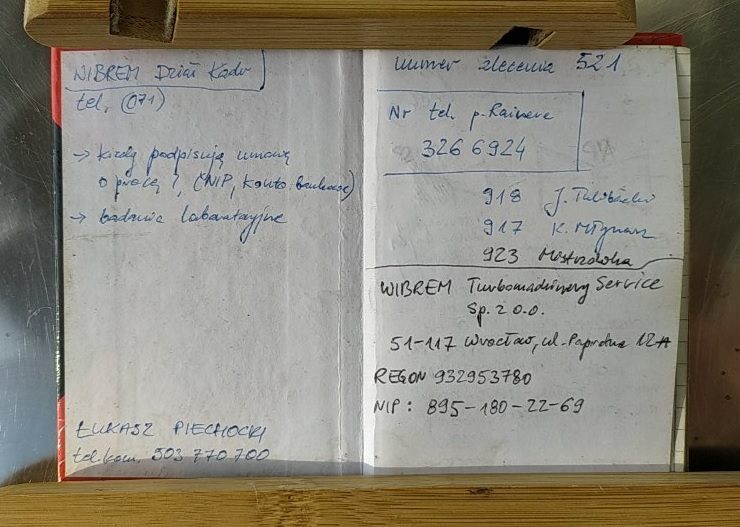 WIBREM Dział Kadr
tel. (071)
→ kiedy podpisują umowę
o pracę?, (NIP, konto bankowe)
→ badania laboratoryjne
ŁUKASZ PIECHOCKI
tel. kom. 503 770 700
numer zlecenia 521
Nr tel. p. Rainera
326 6924
918 J.
917 K. Młynarz
923
WIBREM Turbomachinery Service
Sp. z o.o.
51-117 Wrocław, ul. Paprotna 12A
REGON 932953780
NIP: 895-180-22-69